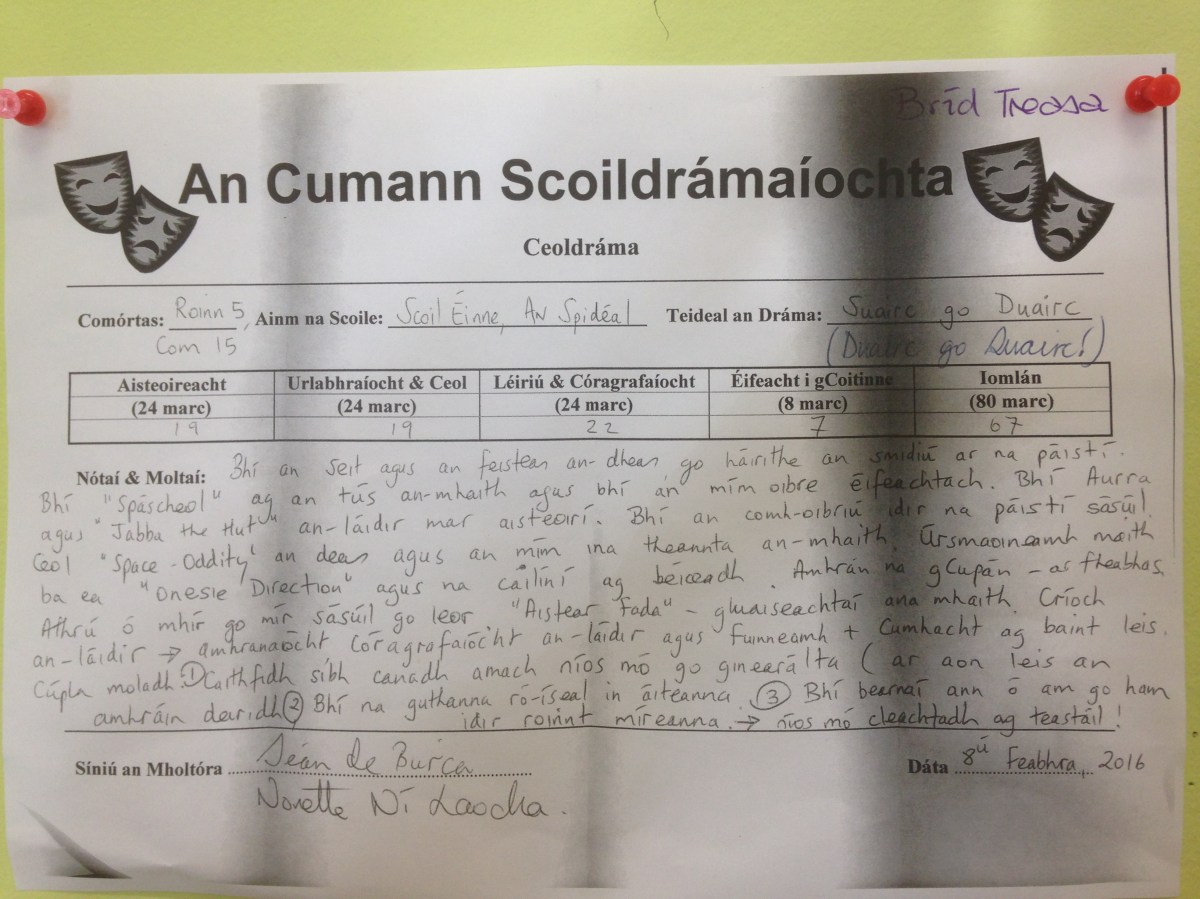 Bríd Treasa
An Cumann Scoildrámaíochta
Ceoldráma
Comórtas: Roinn 5, Ainm na Scoile: Scoil Éinne, An Spidéal Teideal an Dráma: Suairc go Duairc
Com 15 (Duairc go Suairc!)
Aisteoireacht Urlabhraíocht & Ceol Léiriú & Córagrafaíocht Éifeacht i gCoitinne Iomlán
(24 marc) (24 marc) (24 marc) (8 marc) (80 marc)
19 19 22 7 67
Nótaí & Moltaí: Bhí an seit agus an feisteas an-dheas go háirithe an smidiú ar na páistí.
Bhí "Spáscheol" ag an tús an-mhaith agus bhí an mím oibre éifeachtach. Bhí Aurra
agus "Jabba the Hut" an-láidir mar aisteoirí. Bhí an comh-oibriú idir na páistí sásúil.
Ceol "Space-Oddity" an deas agus an mím ina theannta an-mhaith. Úrsmaoineamh maith
ba ea "Onesie Direction" agus na cailíní ag béiceadh. Amhrán na gCupán - ar fheabhas.
Athrú ó mhír go mír sásúil go leor "Aistear Fada" - gluaiseachtaí ana mhaith. Críoch
an-láidir → amhránaíocht Córagrafaíocht an-láidir agus fuinneamh + Cumhacht ag baint leis.
Cúpla moladh: ① Caithfidh sibh canadh amach níos mó go ginearálta (ar aon leis an
amhráin deiridh ② Bhí na guthanna ró-íseal in áiteanna. ③ Bhí bearnaí ann ó am go ham
idir roinnt míreanna. → níos mó cleachtadh ag teastáil!
Síniú an Mholtóra Seán de Búrca Dáta 8ú Feabhra, 2016
Norette Ní Laocha.